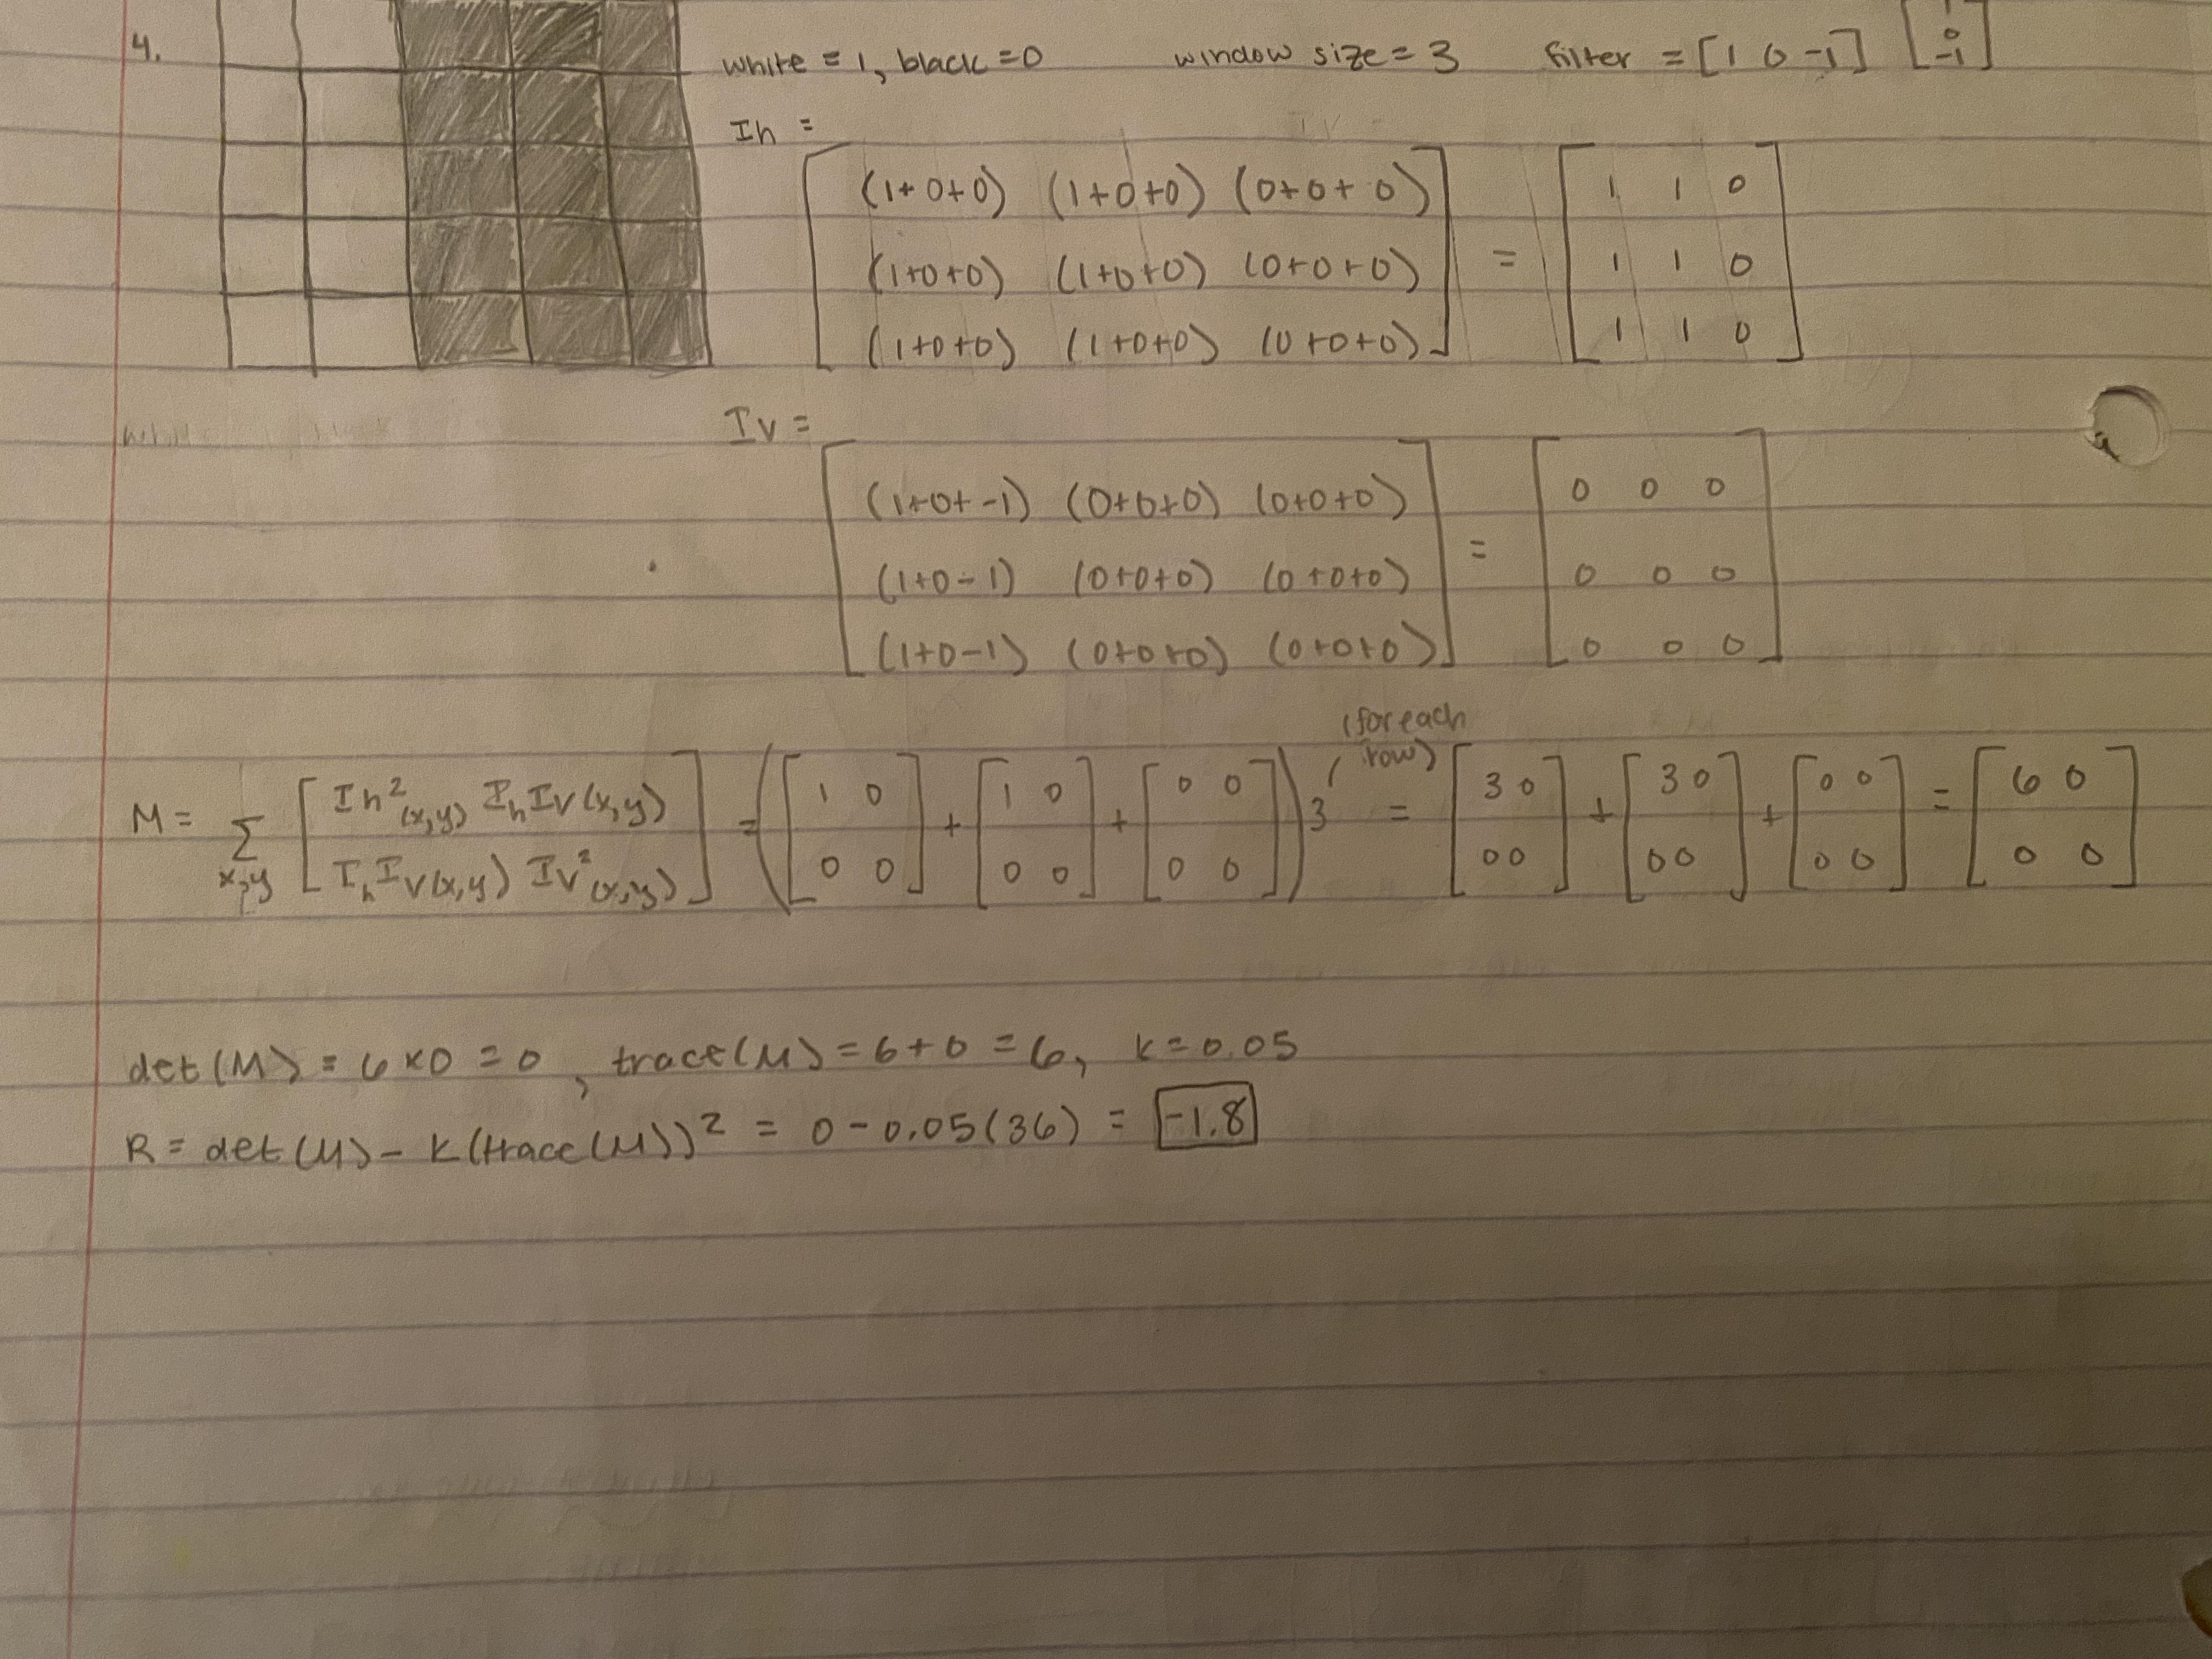 4.
white = 1, black = 0 window size = 3 filter = [1 0 -1] [1 0 -1]
Ih =
[(1+0+0) (1+0+0) (0+0+0)] = [1 1 0]
[(1+0+0) (1+0+0) (0+0+0)] [1 1 0]
[(1+0+0) (1+0+0) (0+0+0)] [1 1 0]
Iv =
[(1+0+-1) (0+0+0) (0+0+0)] = [0 0 0]
[(1+0-1) (0+0+0) (0+0+0)] [0 0 0]
[(1+0-1) (0+0+0) (0+0+0)] [0 0 0]
(for each row)
M = Σ x,y [Ih²(x,y) IhIv(x,y)] = ([1 0] + [1 0] + [0 0]) 3 = [3 0] + [3 0] + [0 0] = [6 0]
[IhIv(x,y) Iv²(x,y)] [0 0] [0 0] [0 0] [0 0] [0 0] [0 0] [0 0]
det(M) = 6×0 = 0, trace(M) = 6+0 = 6, k = 0.05
R = det(M) - k(trace(M))² = 0 - 0.05(36) = -1.8